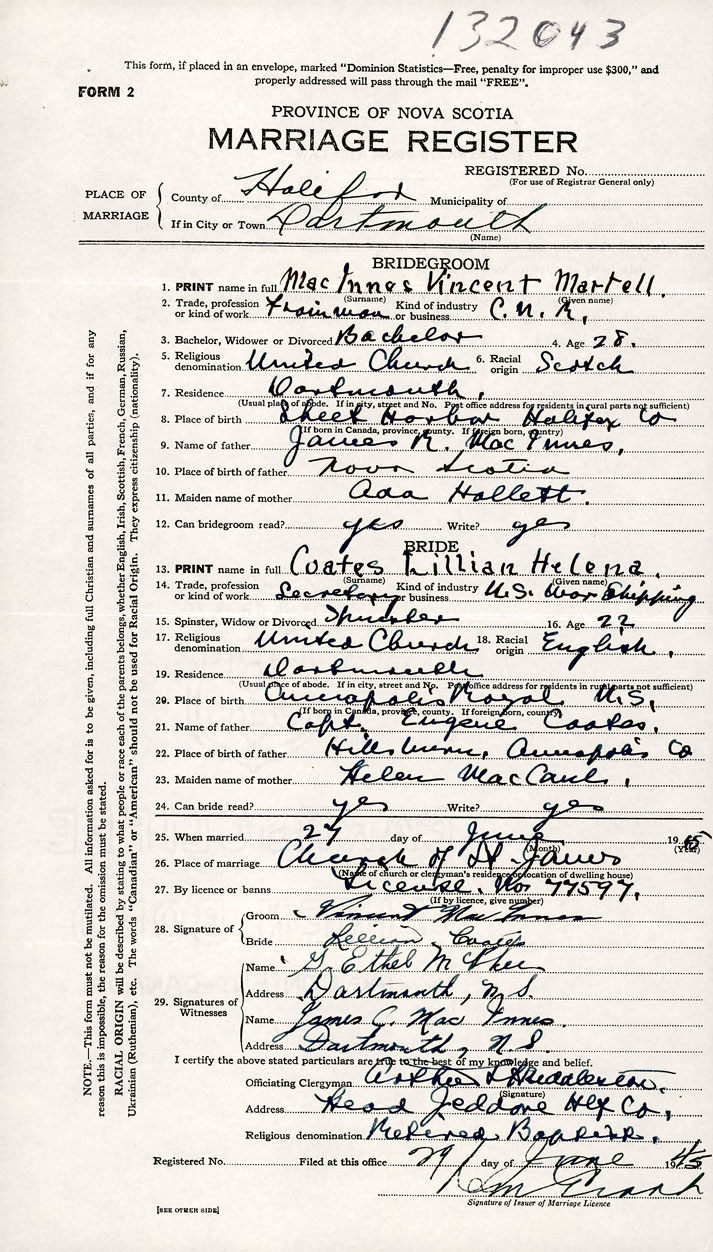 132043
This form, if placed in an envelope, marked "Dominion Statistics—Free, penalty for improper use $300," and
properly addressed will pass through the mail "FREE".
FORM 2
PROVINCE OF NOVA SCOTIA
MARRIAGE REGISTER
REGISTERED No.
(For use of Registrar General only)
PLACE OF MARRIAGE
County of Halifax Municipality of
If in City or Town Dartmouth
(Name)
BRIDEGROOM
1. PRINT name in full Mac Innes Vincent Martell.
(Surname) (Given name)
2. Trade, profession or kind of work Trainman Kind of industry or business C. N. R.
3. Bachelor, Widower or Divorced Bachelor 4. Age 28.
5. Religious denomination United Church 6. Racial origin Scotch
7. Residence Dartmouth,
(Usual place of abode. If in city, street and No. Post office address for residents in rural parts not sufficient)
8. Place of birth Sheet Harbor Halifax Co
(If born in Canada, province, county. If foreign born, country)
9. Name of father James R. Mac Innes,
10. Place of birth of father Nova Scotia
11. Maiden name of mother Ada Hallett.
12. Can bridegroom read? yes Write? yes
BRIDE
13. PRINT name in full Coates Lillian Helena.
(Surname) (Given name)
14. Trade, profession or kind of work Secretary Kind of industry or business U.S. War Shipping
15. Spinster, Widow or Divorced Spinster 16. Age 22
17. Religious denomination United Church 18. Racial origin English,
19. Residence Dartmouth
(Usual place of abode. If in city, street and No. Post office address for residents in rural parts not sufficient)
20. Place of birth Annapolis Royal N.S,
(If born in Canada, province, county. If foreign born, country)
21. Name of father Capt. Eugene Coates.
22. Place of birth of father Hillsburn, Annapolis Co
23. Maiden name of mother Helen MacCaul,
24. Can bride read? yes Write? yes
25. When married 27 day of June 1945
(Month) (Year)
26. Place of marriage Church of St. James
(Name of church or clergyman's residence or location of dwelling house)
27. By licence or banns License. No. 77597,
(If by licence, give number)
28. Signature of
Groom Vincent MacInnes
Bride Lillian Coates
29. Signatures of Witnesses
Name G. Ethel McPhee
Address Dartmouth, N.S.
Name James C. Mac Innes.
Address Dartmouth, N.S.
I certify the above stated particulars are true to the best of my knowledge and belief.
Officiating Clergyman Arthur Middleton.
(Signature)
Address Head Jeddore Hfx Co,
Religious denomination Retired Baptist.
Registered No. Filed at this office 29 day of June 1945
Signature of Issuer of Marriage Licence
[SEE OTHER SIDE]
NOTE.—This form must not be mutilated. All information asked for is to be given, including full Christian and surnames of all parties, and if for any
reason this is impossible, the reason for the omission must be stated.
RACIAL ORIGIN will be described by stating to what people or race each of the parents belongs, whether English, Irish, Scottish, French, German, Russian,
Ukrainian (Ruthenian), etc. The words "Canadian" or "American" should not be used for Racial Origin. They express citizenship (nationality).